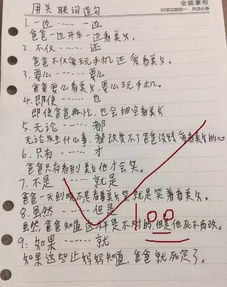 用关联词造句
1.一边……一边
爸爸一边开车一边看美女。
2.不仅……还
爸爸不仅爱玩手机还爱看美女。
3.要么……要么
爸爸要么看美女,要么玩手机。
4.即使……也
即使爸爸再忙,也会把美女看
5.无论……都
无论发生什么事,都改变不了爸爸没钱看美女的心
6.只有……才
爸爸只有看到美女他才会笑。
7.不是……就是
爸爸一天到晚不是看着美女笑就是笑着看美女。
8.虽然……但是
虽然,爸爸知道这样是不对的,但是他死不肯改。
9.如果……就
如果这些让妈妈知道,爸爸就死定了。
100